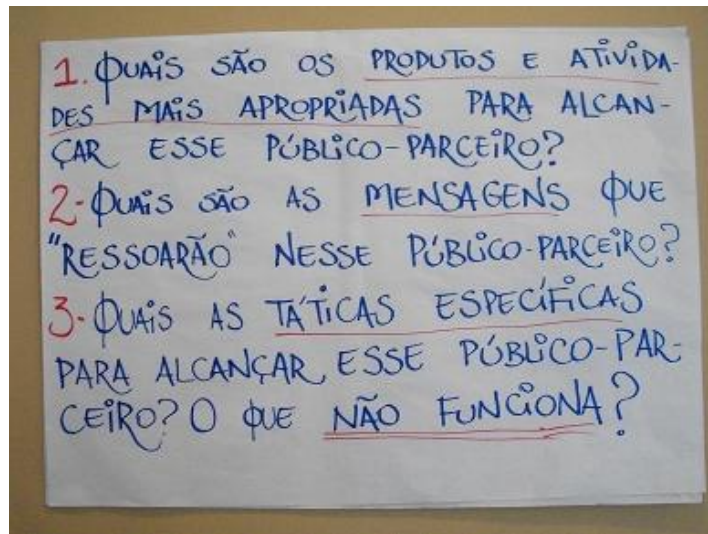 1. QUAIS SÃO OS PRODUTOS E ATIVIDA-
DES MAIS APROPRIADAS PARA ALCAN-
ÇAR ESSE PÚBLICO-PARCEIRO?
2- QUAIS SÃO AS MENSAGENS QUE
"RESSOARÃO" NESSE PÚBLICO-PARCEIRO?
3- QUAIS AS TÁTICAS ESPECÍFICAS
PARA ALCANÇAR ESSE PÚBLICO-PAR-
CEIRO? O QUE NÃO FUNCIONA?